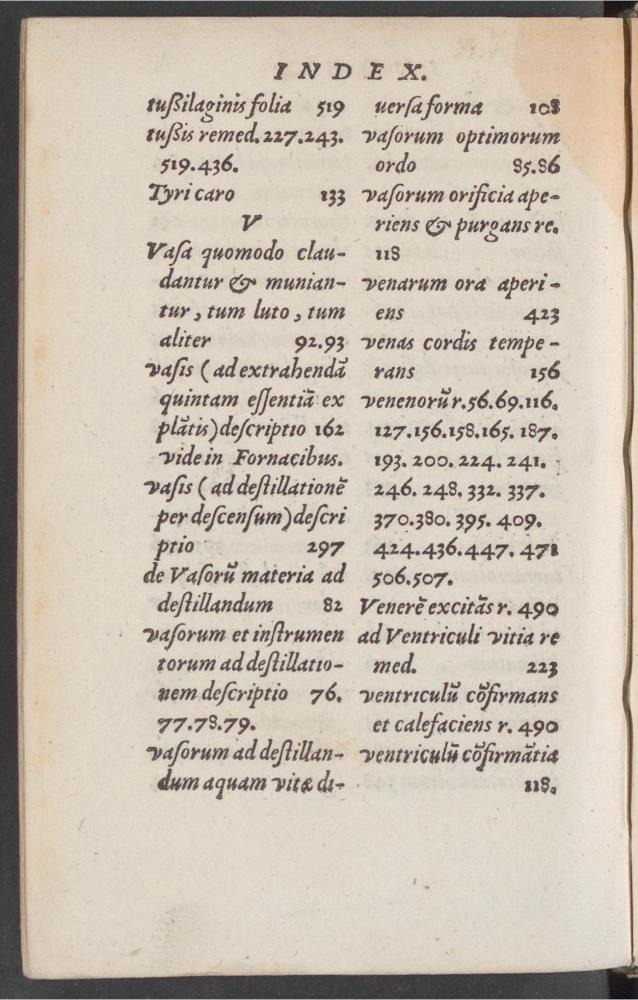 INDEX.
tußilaginis folia 519
tußis remed. 227.243.
519.436.
Tyri caro 133
V
Vaſa quomodo clau-
dantur & munian-
tur, tum luto, tum
aliter 92.93
vaſis (ad extrahendã
quintam eſſentiã ex
plãtis) deſcriptio 162
vide in Fornacibus.
vaſis (ad deſtillationẽ
per deſcenſum) deſcri
ptio 297
de Vaſorũ materia ad
deſtillandum 82
vaſorum et inſtrumen
torum ad deſtillatio-
nem deſcriptio 76.
77.78.79.
vaſorum ad deſtillan-
dum aquam vitæ di-
uerſa forma 108
vaſorum optimorum
ordo 85.86
vaſorum orificia ape-
riens & purgans re.
118
venarum ora aperi-
ens 423
venas cordis tempe-
rans 156
venenorũ r. 56.69.116.
127.156.158.165.187.
193.200.224.241.
246.248.332.337.
370.380.395.409.
424.436.447.471
506.507.
Venerẽ excitãs r. 490
ad Ventriculi vitia re
med. 223
ventriculũ cõfirmans
et calefaciens r. 490
ventriculũ cõfirmãtia
118.